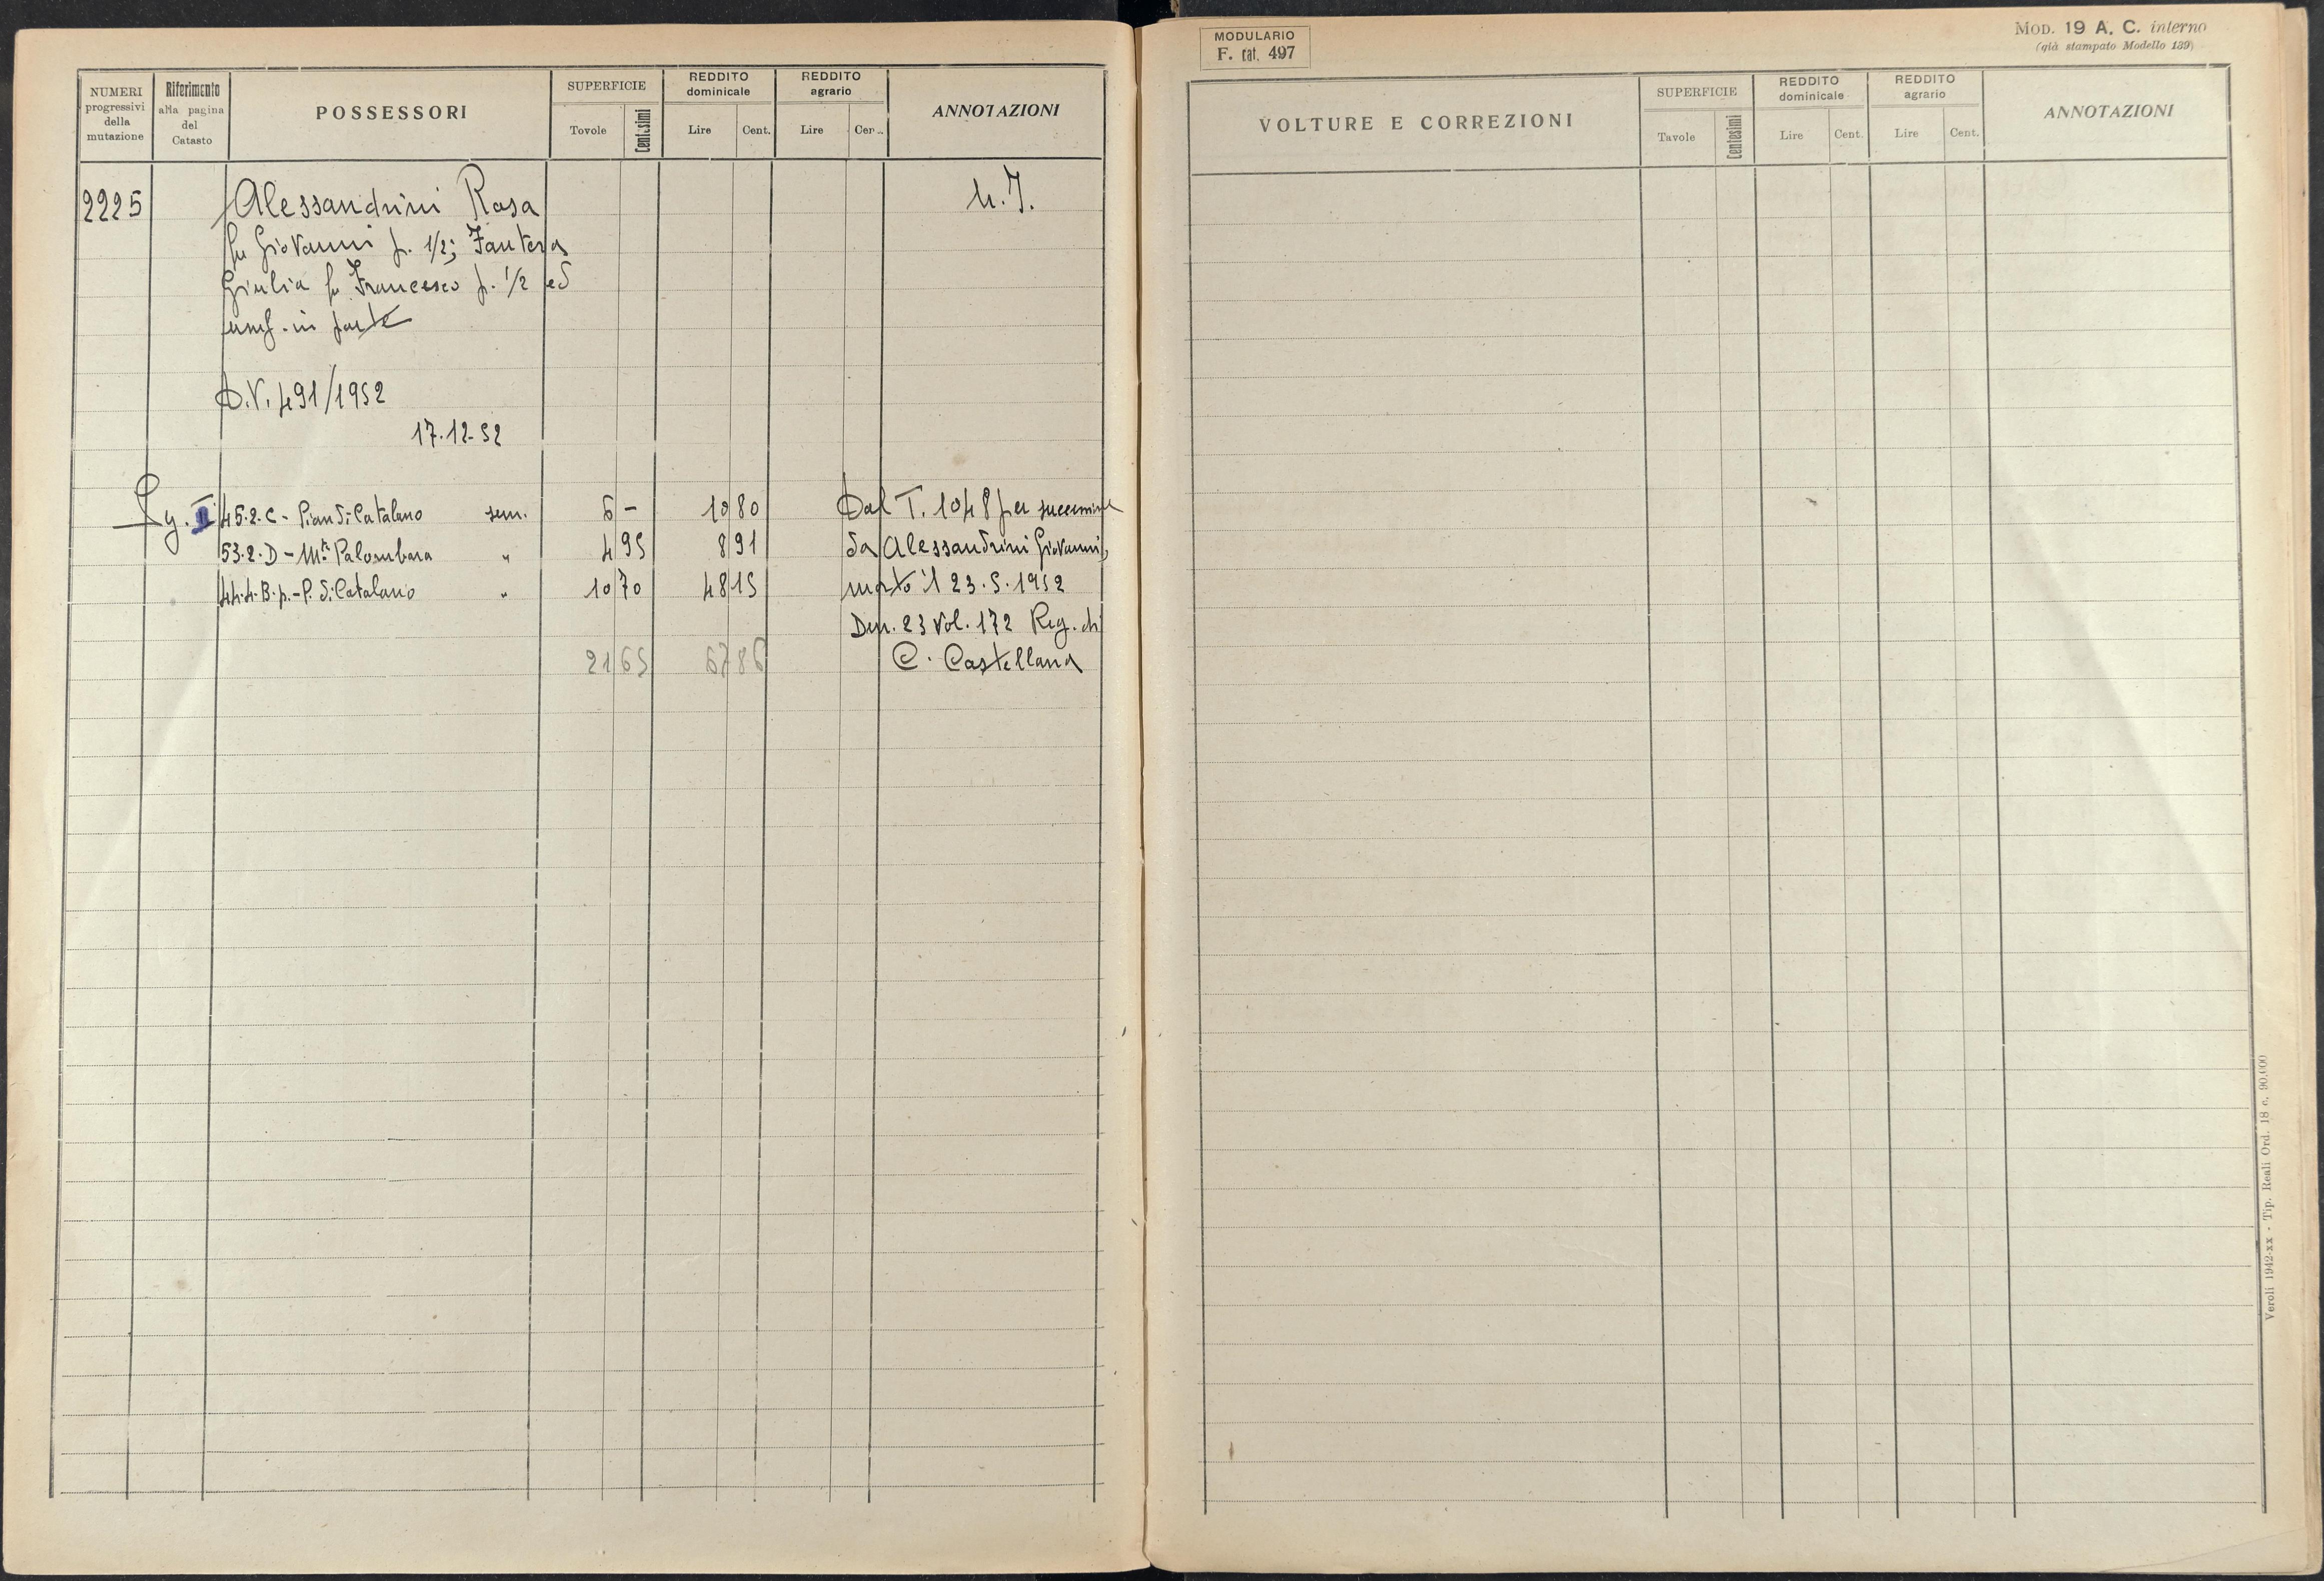 NUMERI progressivi della mutazione
Riferimento alla pagina del Catasto
POSSESSORI
SUPERFICIE
Tovole
Centesimi
REDDITO dominicale
Lire
Cent.
REDDITO agrario
Lire
Cen..
ANNOTAZIONI
2225 Alessandrini Rosa N.I.
fu Giovanni p. 1/2; Fantera
Giulia fu Francesco p. 1/2 ed
usuf. in parte
D.V. 491/1952
17.12.52
Sg. II 45.2.C - Pian di Catalano sem. 6 - 10 80 Dal T. 1048 per successione
53.2.D - M.te Palombara " 4 95 8 91 da Alessandrini Giovanni,
44.4.B.p. - P. di Catalano " 10 70 48 15 morto il 23.5.1952
Den. 23 Vol. 172 Reg. di
21 65 67 86 C. Castellana
MODULARIO
F. cat. 497
MOD. 19 A. C. interno
(già stampato Modello 139)
VOLTURE E CORREZIONI
SUPERFICIE
Tavole
Centesimi
REDDITO dominicale
Lire
Cent.
REDDITO agrario
Lire
Cent.
ANNOTAZIONI
Veroli 1942-xx - Tip. Reali Ord. 18 c. 90.000